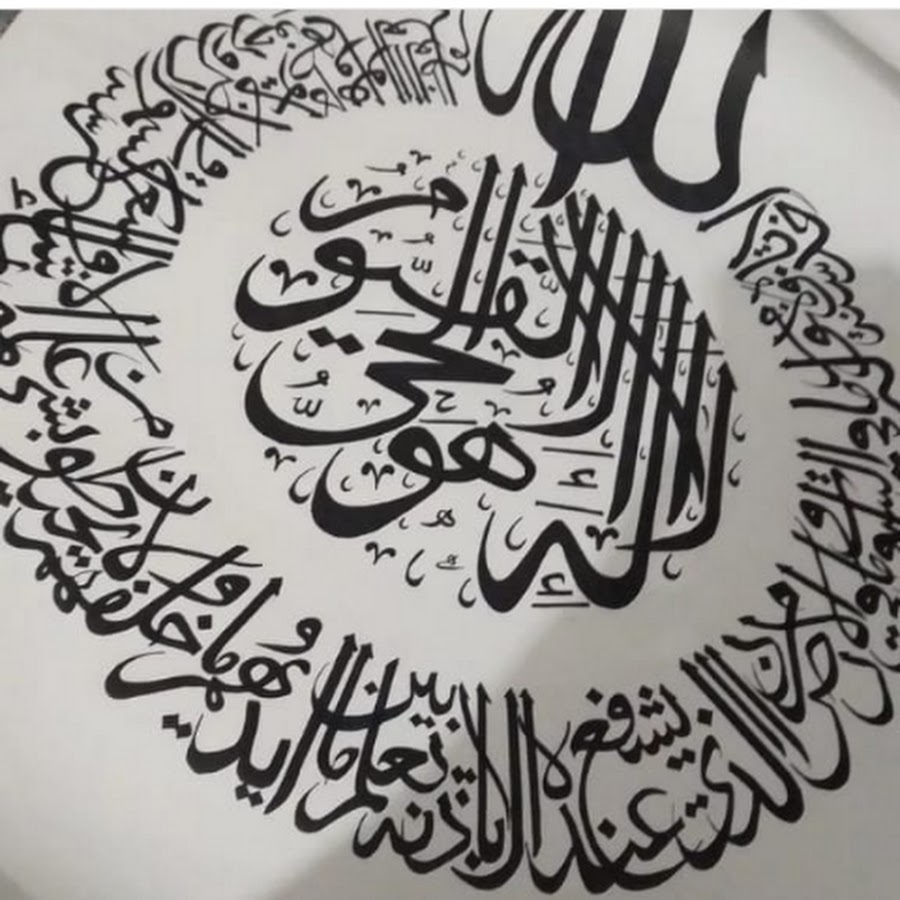 الله
لا اله الا هو الحي القيوم
لا تأخذه سنة ولا نوم له ما في السموات وما في الارض من ذا الذي يشفع عنده الا باذنه يعلم ما بين ايديهم وما خلفهم ولا يحيطون بشئ من علمه الا بما شاء وسع كرسيه السموات والارض